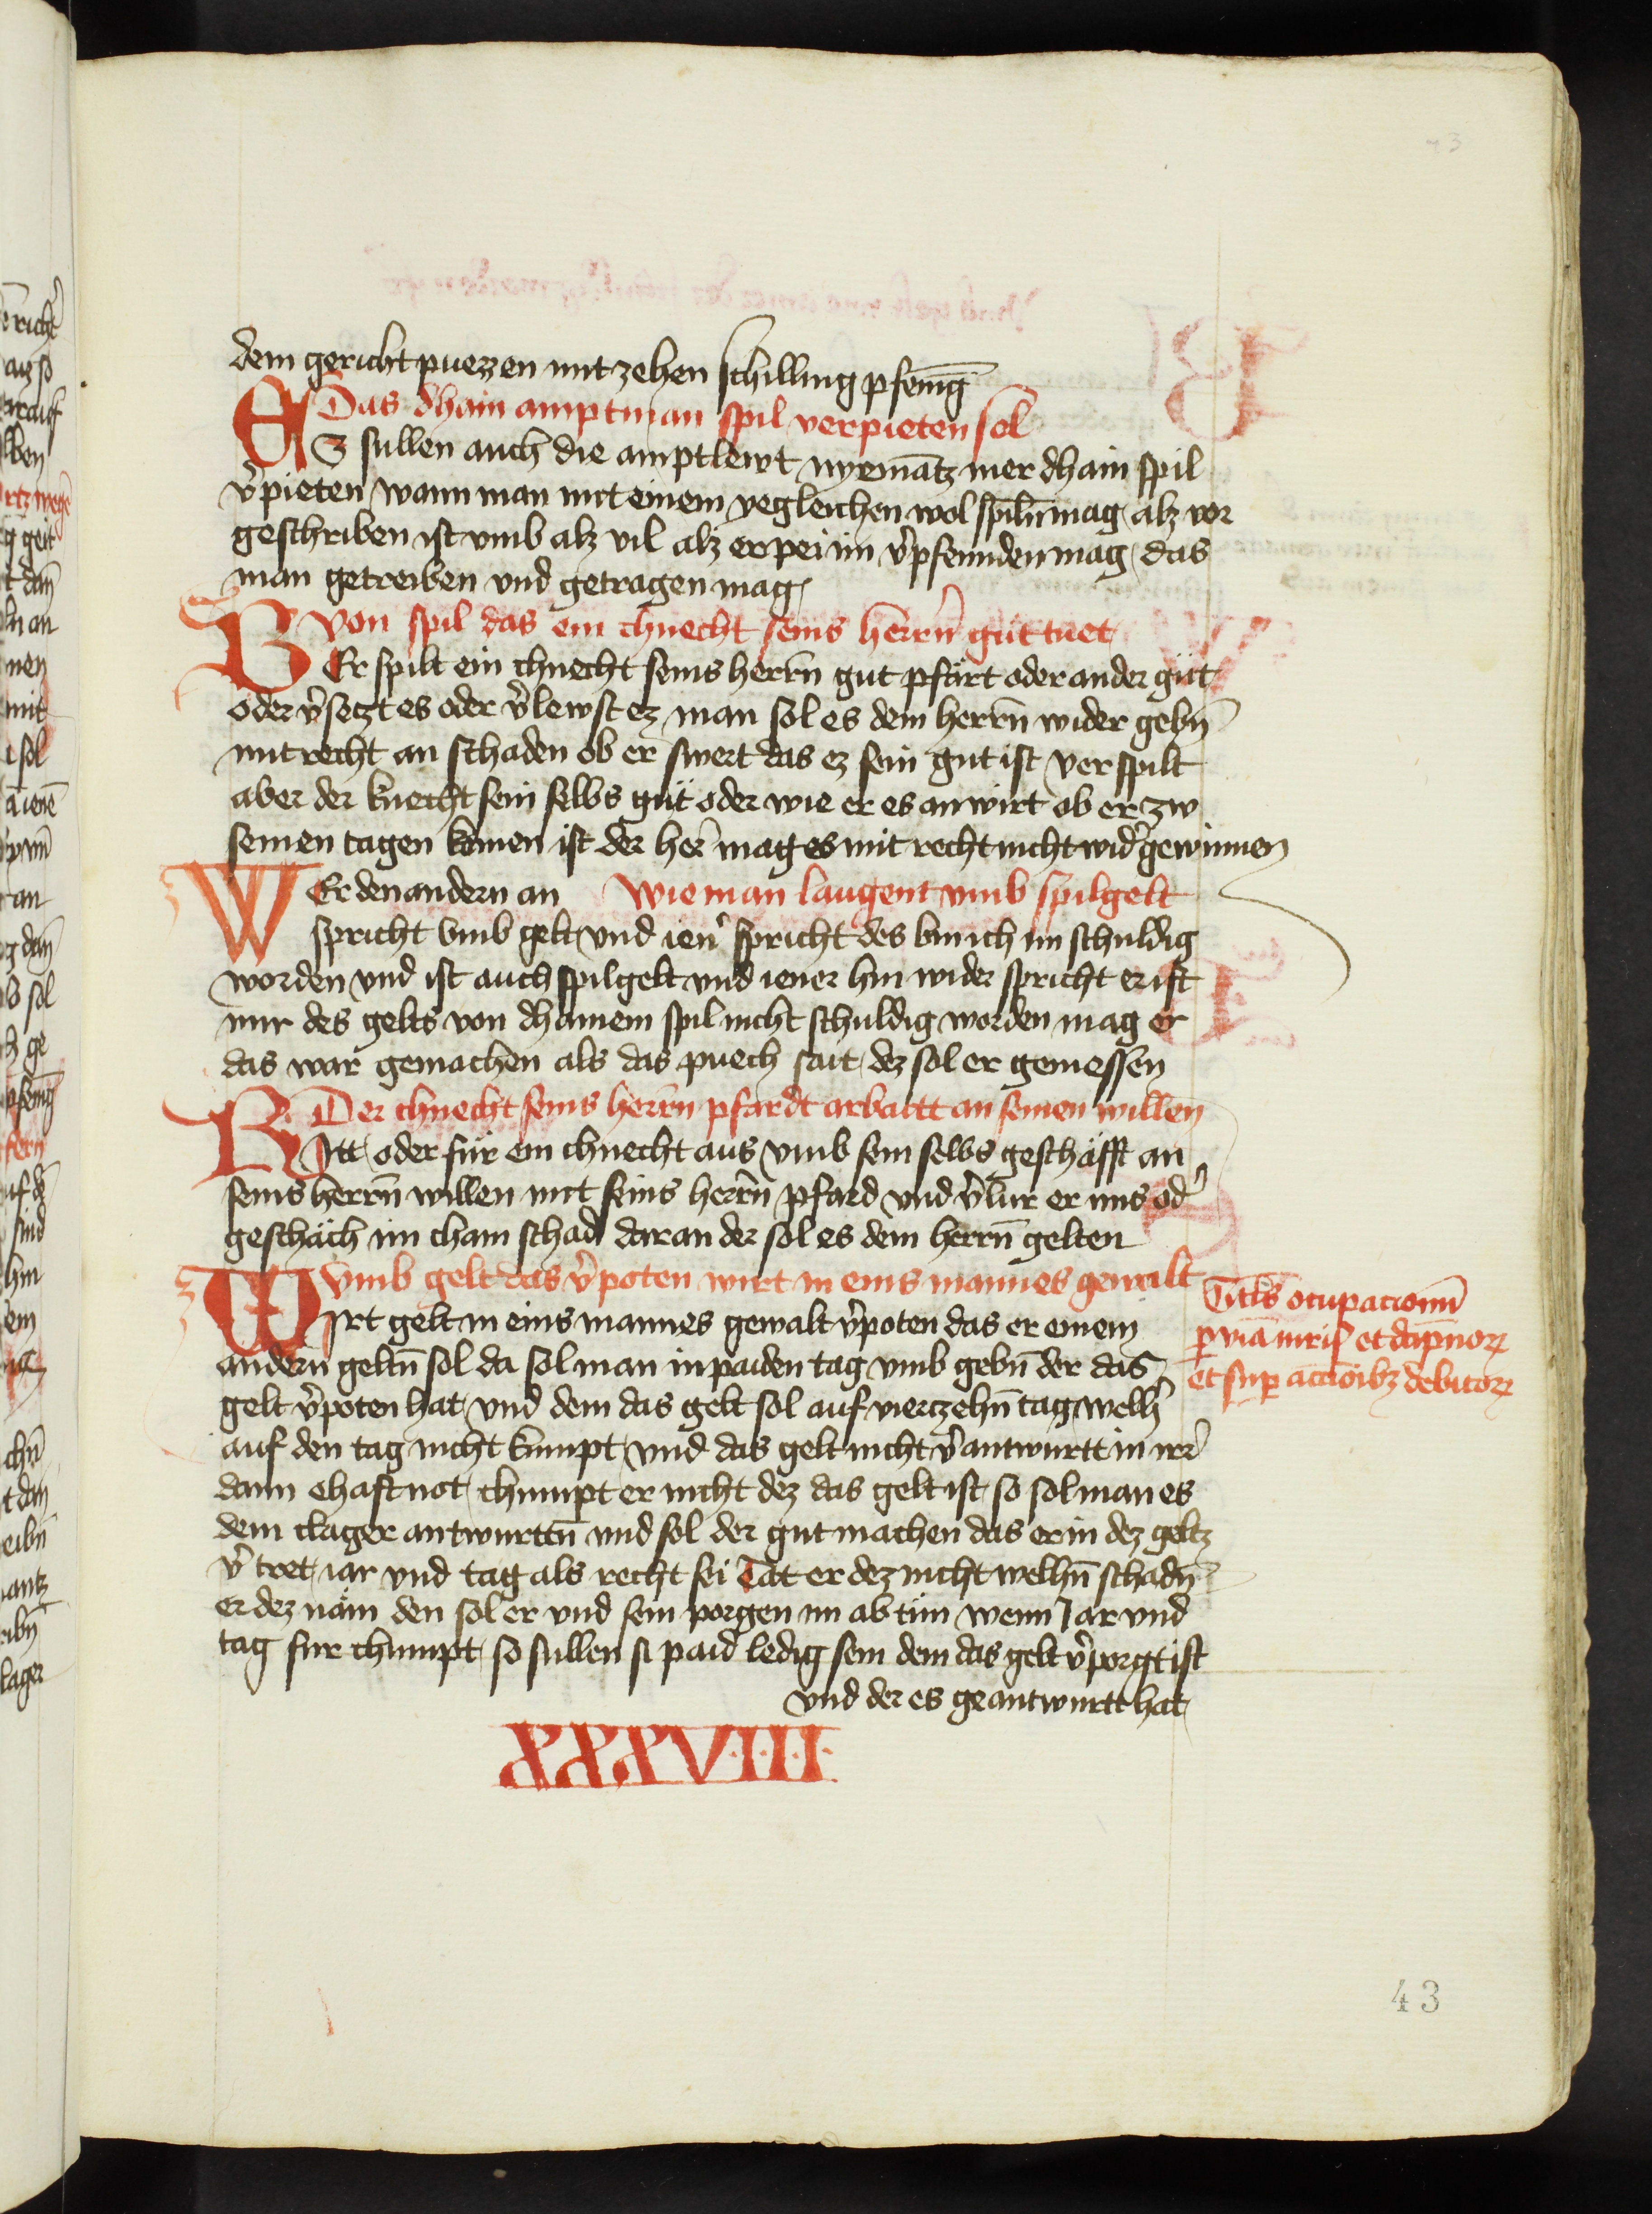 dem gericht puezzen mit zehen schilling pfenīg
Das dhain amptman spil verpieten sol
ES sullen auch die amptlewt nyemātz mer dhain spil
v̾pieten wann man mit einem yegleichen wol spiln̄ mag alz vor
geschriben ist vmb alz vil alz er pei im v̾pfennden mag das
man getreiben vnd getragen mag
Von spil das ein chnecht seins herrn̄ gut tuet
VEr spilt ein chnecht seins herrn̄ gut pfärt oder ander gut
oder v̾setzt es oder v̾lewst ez man sol es dem herrn̄ wider gebn̄
mit recht an schaden ob er swert das ez sein gut ist verspilt
aber der knecht sein selbs gut oder wie er es an wirt ob er zw
seinen tagen komen ist der her̄ mag es mit recht nicht wid̾gewinnen
WEr den andern an Wie man laugent vmb spilgelt
spricht vmb gelt vnd ien̾ spricht des bin ich im schuldig
worden vnd ist auch spilgelt vnd iener hin wider spricht er ist
mir des gelts von dhainem spil nicht schuldig worden mag er
das war gemachen als das puech sait dez sol er geniessen
Der chnecht seins herrn̄ pfärdt arbaitt an seinen willen
RItt oder für ein chnecht aus vmb sein selbs geschäfft an
seins herrn̄ willen mit seins herrn̄ pfard vnd v̾lür er ims od̾
geschäch im chain schad daran der sol es dem herrn̄ gelten
Vmb gelt das v̾poten wirt in eins mannes gewalt
WIrt gelt in eins mannes gewalt v̾poten das er einem
andern geltn̄ sol da sol man in paiden tag vmb gebn̄ der das
gelt v̾poten hat vnd dem das gelt sol auf viertzehn̄ tag welh̾
auf den tag nicht kumpt vnd das gelt nicht v̾antwurtt in irr̾
dann ehaft not chumpt er nicht dez das gelt ist so sol man es
dem clager antwurttn̄ vnd sol der gut machen das er in dez geltz
v̾tret iar vnd tag als recht sei Tät er dez nicht welhn̄ schadn̄
er dez näm den sol er vnd sein porgen im ab tün wenn Jar vnd
tag für chumpt so sullen si paid ledig sein dem das gelt v̾porgt ist
vnd der es geantwurtt hat
Titl̄s ocupacionū
ꝑ viā iuris et dāpnoꝝ
et suꝑ accōibꝫ debitoꝝ
XXXVIIII
43